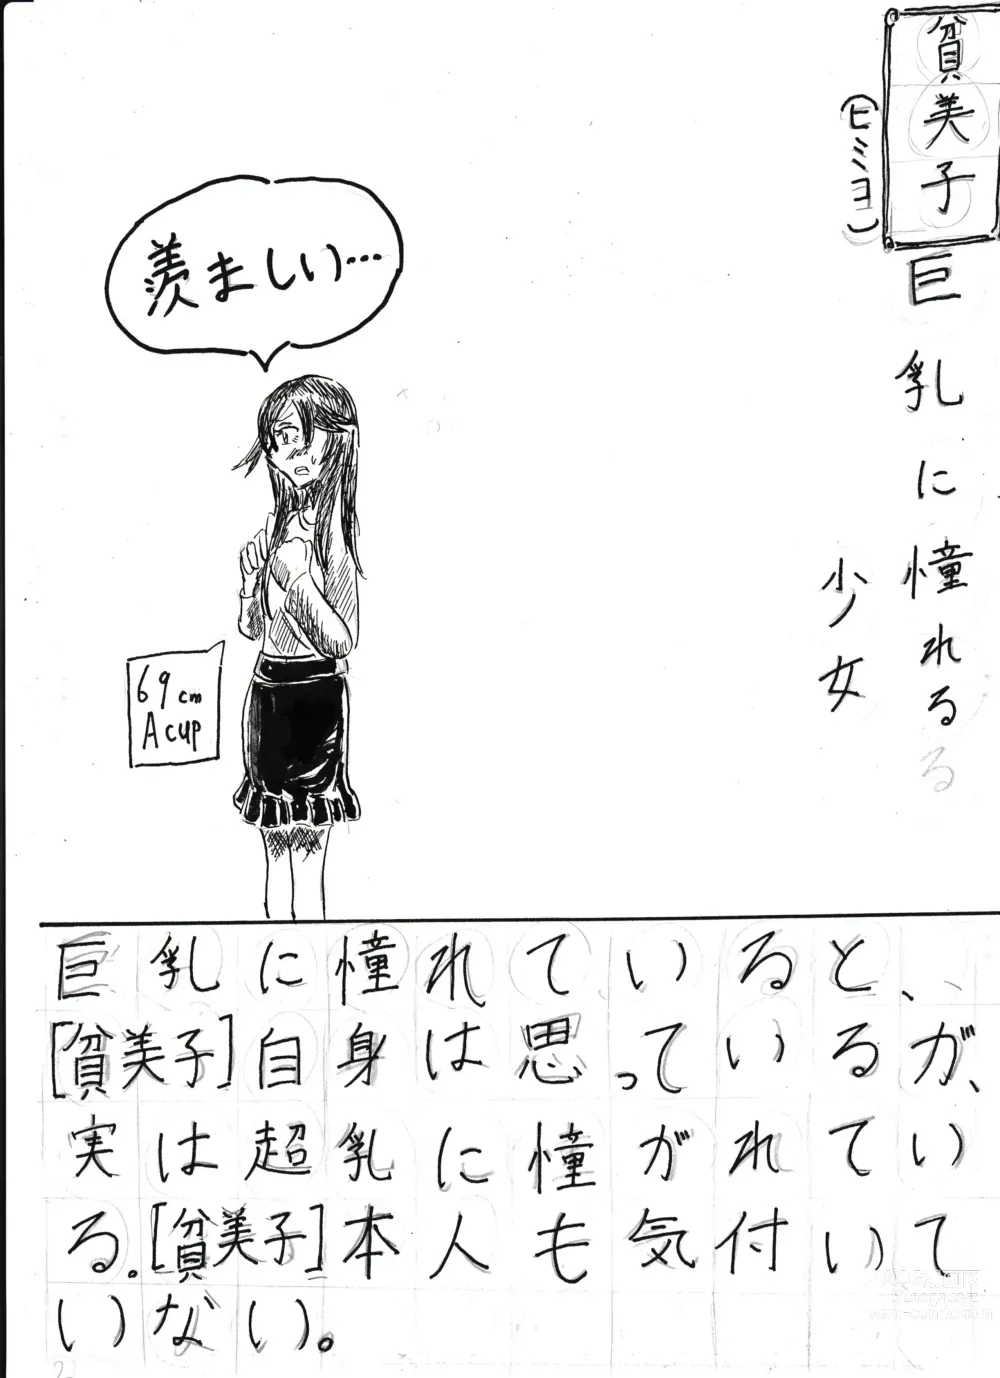 貧美子
(ヒミコ)
巨乳に憧れる
る
少女
羨ましい…
69cm
A cup
巨乳に憧れていると、
[貧美子]自身は思っているが、
実は超乳に憧がれてい
る。[貧美子]本人も気付いて
いない。